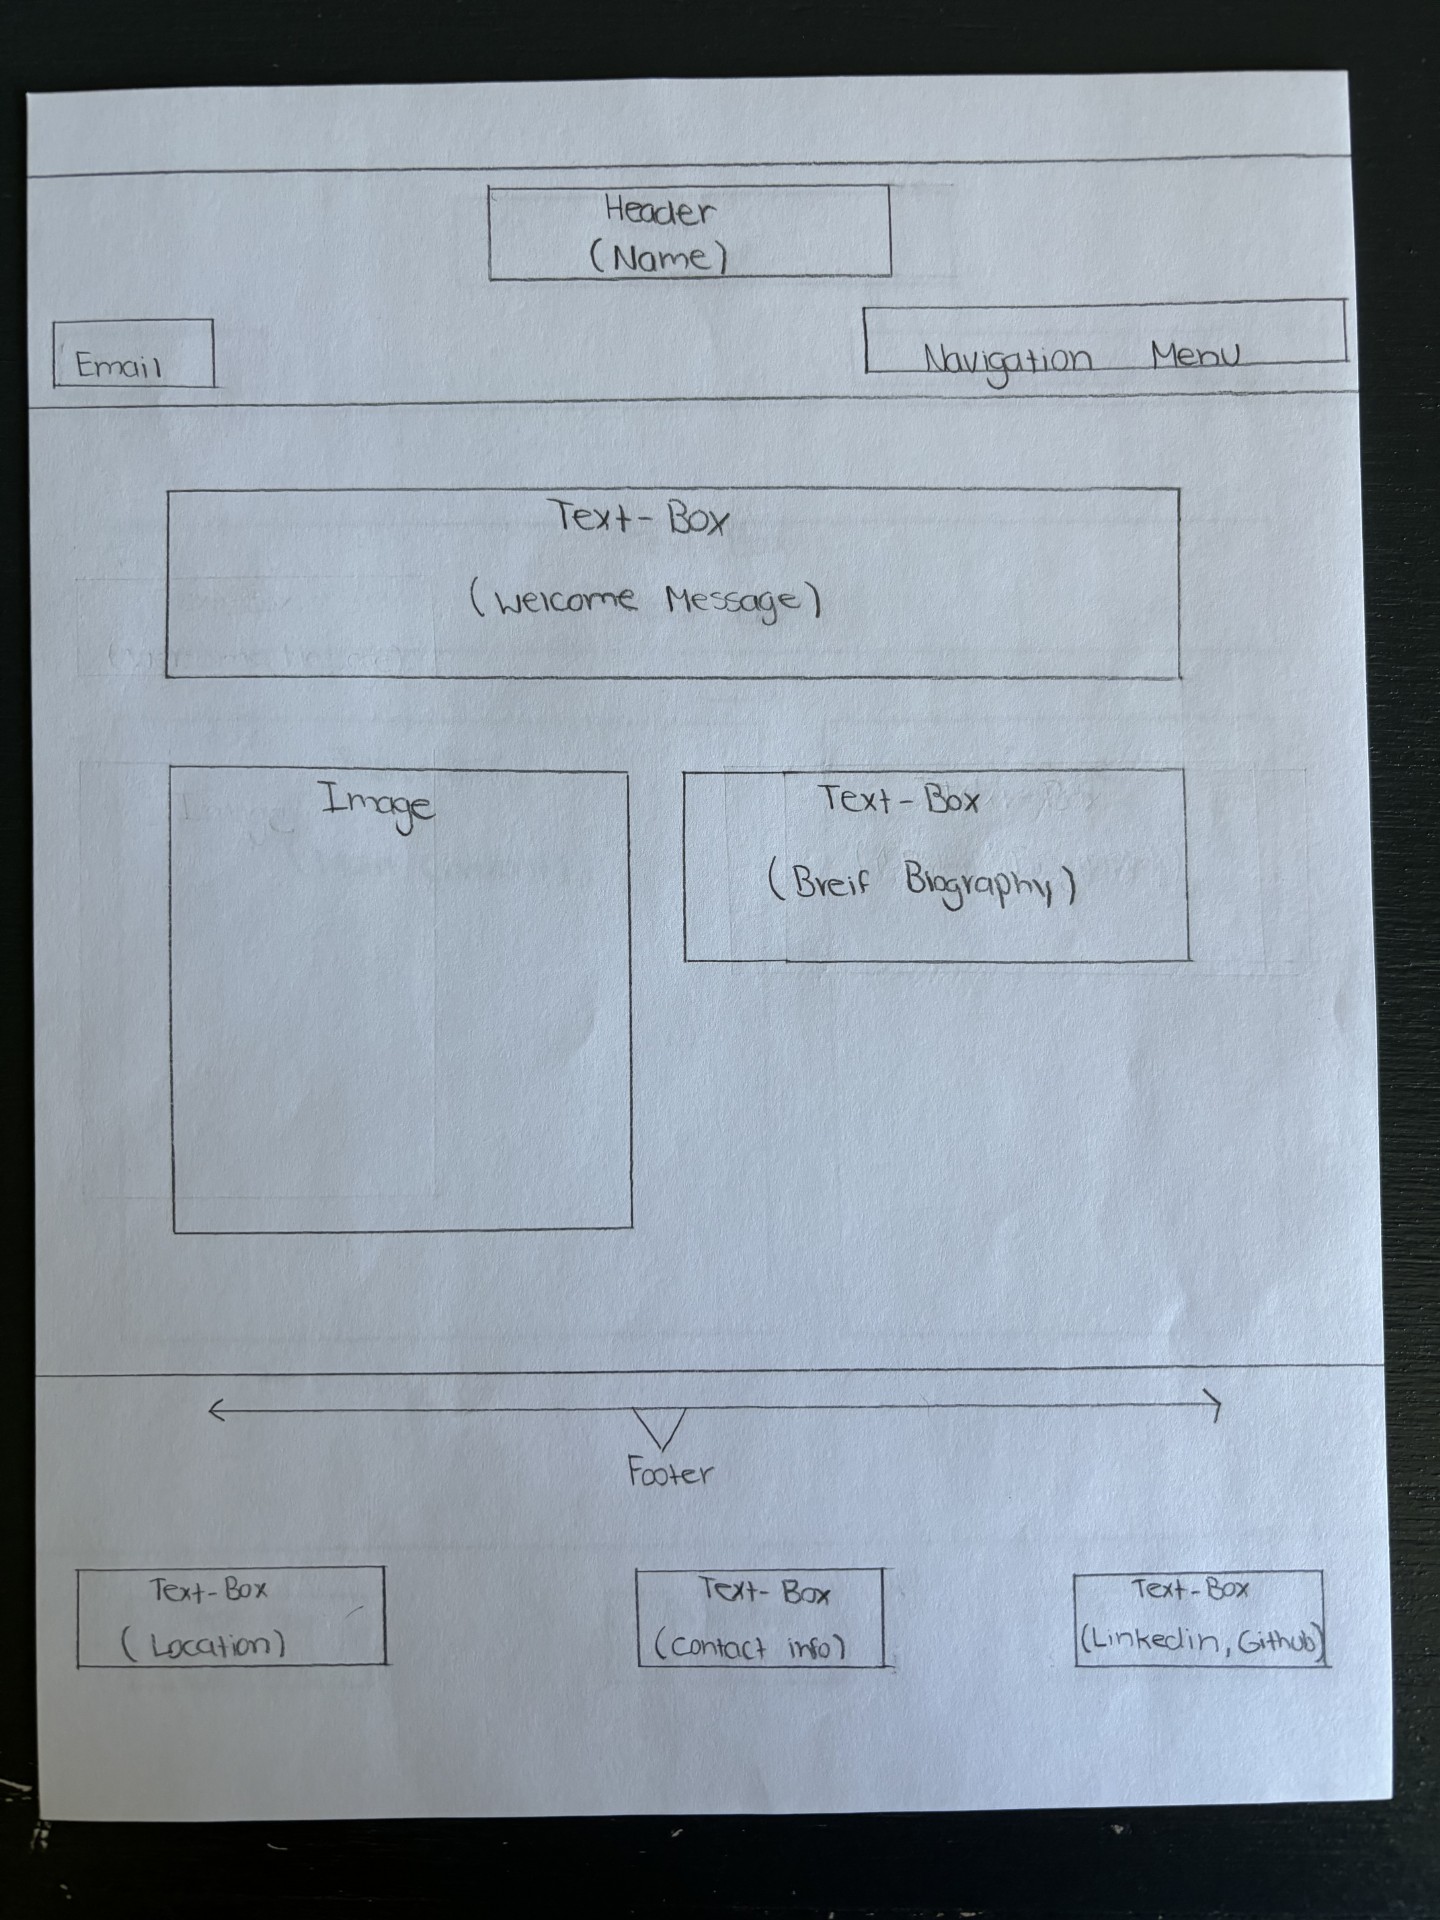 Header
(Name)
Email
Navigation Menu
Text-Box
(Welcome Message)
Image
Text-Box
(Breif Biography)
Footer
Text-Box
(Location)
Text-Box
(Contact info)
Text-Box
(Linkedin, Github)